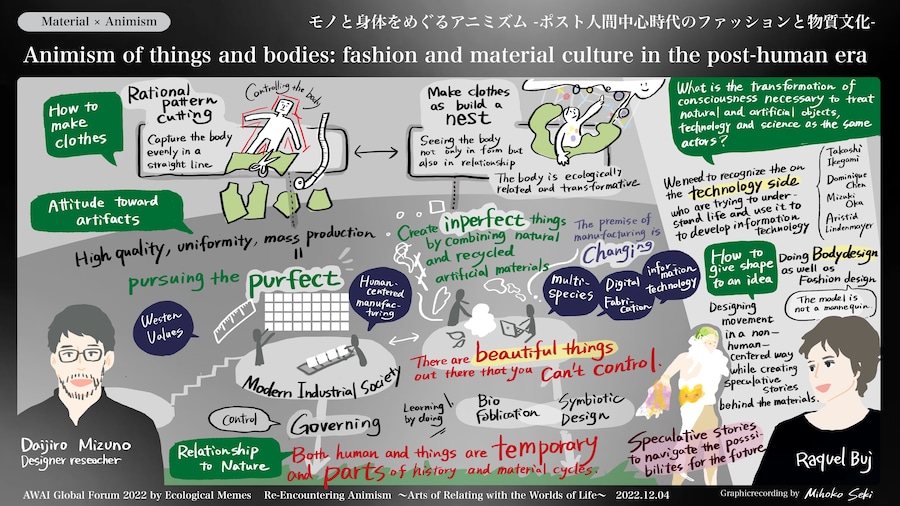 Material × Animism
モノと身体をめぐるアニミズム -ポスト人間中心時代のファッションと物質文化-
Animism of things and bodies: fashion and material culture in the post-human era
How to
make
clothes
Rational
pattern
cutting
Controlling the body
Capture the body
evenly in a
straight line
Make clothes
as build a
nest
Seeing the body
not only in form but
also in relationship
The body is ecologically
related and transformative
What is the transformation of
consciousness necessary to treat
natural and artificial objects,
technology and science as the same
actors?
We need to recognize the on
the technology side
who are trying to under-
stand life and use it to
to develop information
Technology
Takashi
Ikegami
Dominique
Chen
Mizuki
Oka
Aristid
Lindenmayer
Attitude toward
artifacts
High quality, uniformity, mass production
=
pursuing the purfect
Create inperfect things
by combining natural
and recycled
artificial materials
The premise of
manufacturing is
Changing
Multi-
Species
Digital
Fabri-
cation
information
Technology
Westen
Values
Human-
centered
manufac-
turing
Modern Industrial Society
There are beautiful things
out there that you can't control.
How to
give shape
to an idea
Doing Bodydesign
as well as
Fashion design
The model is
not a mannequin.
Designing
movement
in a non-
human-
centered way
while creating
speculative
stories
behind the materials.
Control
Governing
Learning
by doing
Bio
Fablication
Symbiotic
Design
Relationship
to Nature
Both human and things are temporary
and parts of history and material cycles.
Speculative stories
to navigate the posssi-
bilites for the future
Daijiro Mizuno
Designer reseacher
Raquel Buj
AWAI Global Forum 2022 by Ecological Memes Re-Encountering Animism ～Arts of Relating with the Worlds of Life～ 2022.12.04
Graphicrecording by Mihoko Seki